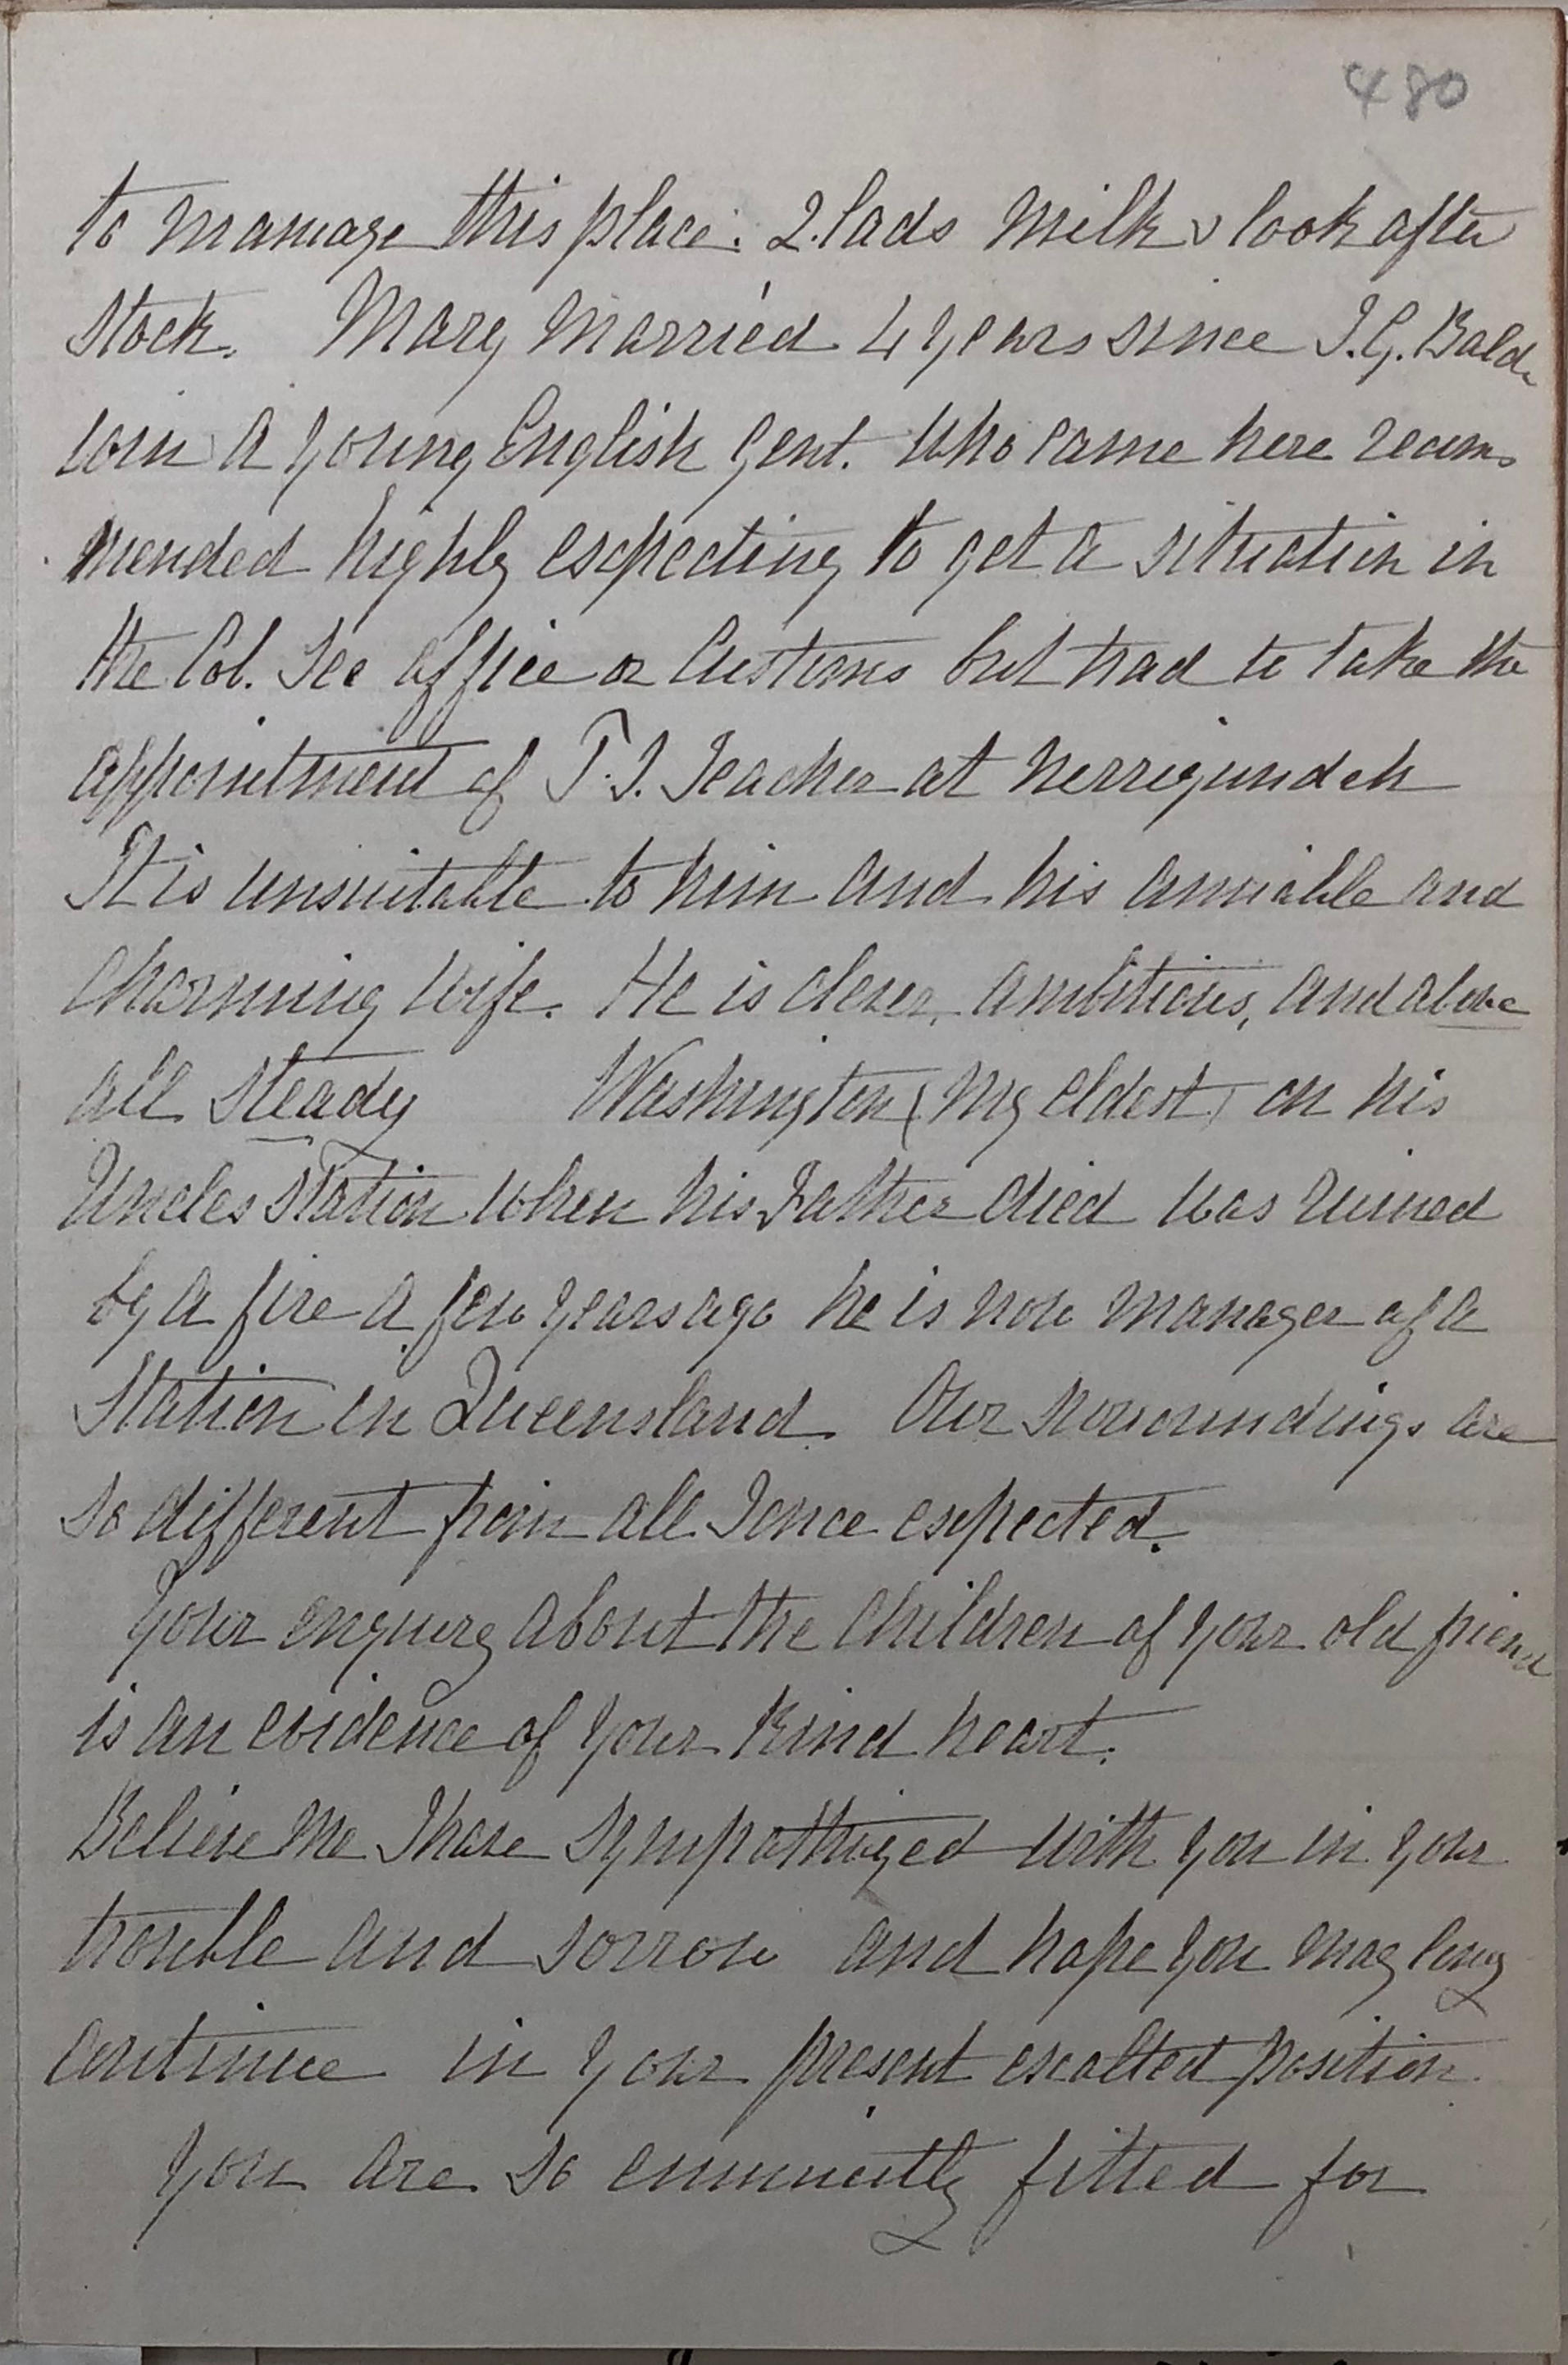 480
to manage this place. 2 lads milk & look after
stock. Mary married 4 years since J.G. Bald
win a young English Gent. who came here recom
mended highly expecting to get a situation in
the Col. Sec office or Customs but had to take the
appointment of Teacher at Nerrigundah
It is unsuitable to him and his amiable and
charming wife. He is clever, ambitious, and above
all steady Washington (my eldest) on his
Uncles station when his Father died was ruined
by a fire a few years ago he is now manager of a
Station in Queensland. Our surroundings are
so different from all I once expected.
Your enquiry about the children of your old friend
is an evidence of your kind heart.
Believe me I have sympathized with you in your
trouble and sorrow and hope you may long
continue in your present exalted position.
You are so eminently fitted for